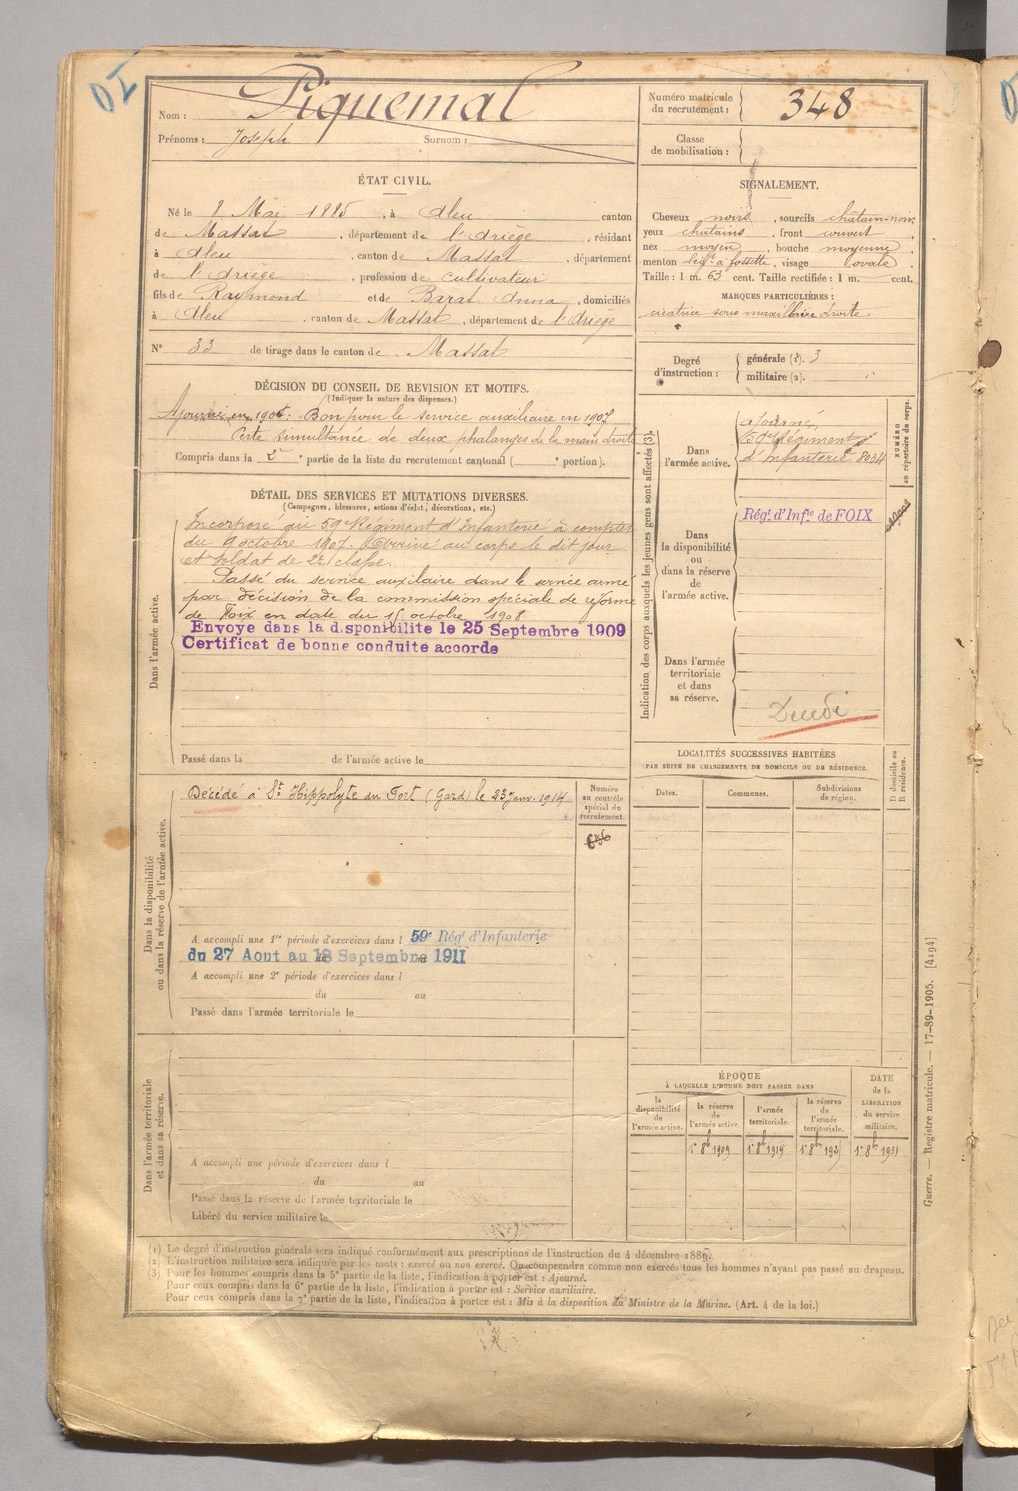 Nom : Piquemal
Prénoms : Joseph Surnom :
Numéro matricule du recrutement : 348
Classe de mobilisation :
ÉTAT CIVIL.
Né le 8 Mai 1885, à Aleu canton
de Massat, département de l'Ariège, résidant
à Aleu, canton de Massat, département
de l'Ariège, profession de cultivateur
fils de Raymond et de Barat Anna, domiciliés
à Aleu, canton de Massat, département de l'Ariège
N° 33 de tirage dans le canton de Massat
SIGNALEMENT.
Cheveux noirs, sourcils châtain-noir
yeux chatains, front couvert
nez moyen, bouche moyenne
menton à fossette, visage ovale
Taille : 1 m. 63 cent. Taille rectifiée : 1 m. cent.
MARQUES PARTICULIÈRES :
cicatrice sous maxillaire droite.
Degré d'instruction : générale (1). 3
militaire (2).
DÉCISION DU CONSEIL DE REVISION ET MOTIFS.
(Indiquer la nature des dispenses.)
Ajourné en 1906. Bon pour le service auxiliaire en 1907
Perte simultanée de deux phalanges de la main droite
Compris dans la 2e partie de la liste du recrutement cantonal ( e portion).
DÉTAIL DES SERVICES ET MUTATIONS DIVERSES.
(Campagnes, blessures, actions d'éclat, décorations, etc.)
Dans l'armée active.
Incorporé au 59e Régiment d'Infanterie à compter
du 9 octobre 1907. Arrivé au corps le dit jour
et soldat de 2e classe.
Passé du service auxilaire dans le service armé
par décision de la commission spéciale de réforme
de Foix en date du 15 octobre 1908
Envoye dans la disponibilite le 25 Septembre 1909
Certificat de bonne conduite accorde
Passé dans la de l'armée active le
Indication des corps auxquels les jeunes gens sont affectés (3).
NUMÉRO au répertoire du corps.
Dans l'armée active.
Ajourné
59e Régiment
d'Infanterie 8034
Dans la disponibilité ou dans la réserve de l'armée active.
Régt d'Infie de FOIX
Dans l'armée territoriale et dans sa réserve.
Décédé
LOCALITÉS SUCCESSIVES HABITÉES
PAR SUITE DE CHANGEMENTS DE DOMICILE OU DE RÉSIDENCE.
Dates. Communes. Subdivisions de région. D domicile ou R résidence.
Dans la disponibilité ou dans la réserve de l'armée active.
Décédé à St Hippolyte du Fort (Gard) le 23 janv. 1914
Numéro au contrôle spécial du recrutement.
A accompli une 1re période d'exercices dans l 59e Régt d'Infanterie
du 27 Aout au 18 Septembre 1911
A accompli une 2e période d'exercices dans l
du au
Passé dans l'armée territoriale le
Dans l'armée territoriale et dans sa réserve.
A accompli une période d'exercices dans l
du au
Passé dans la réserve de l'armée territoriale le
Libéré du service militaire le
ÉPOQUE
À LAQUELLE L'HOMME DOIT PASSER DANS
la disponibilité de l'armée active.
la réserve de l'armée active.
l'armée territoriale.
la réserve de l'armée territoriale.
DATE de la LIBÉRATION du service militaire.
1er 8bre 1909 1er 8bre 1919 1er 8bre 1931
(1) Le degré d'instruction générale sera indiqué conformément aux prescriptions de l'instruction du 4 décembre 1889.
(2) L'instruction militaire sera indiquée par les mots : exercé ou non exercé. On comprendra comme non exercés tous les hommes n'ayant pas passé au drapeau.
(3) Pour les hommes compris dans la 5e partie de la liste, l'indication à porter est : Ajourné.
Pour ceux compris dans la 6e partie de la liste, l'indication à porter est : Service auxiliaire.
Pour ceux compris dans la 7e partie de la liste, l'indication à porter est : Mis à la disposition du Ministre de la Marine. (Art. 4 de la loi.)
Guerre. — Registre matricule. — 17-89-1905. [4194]